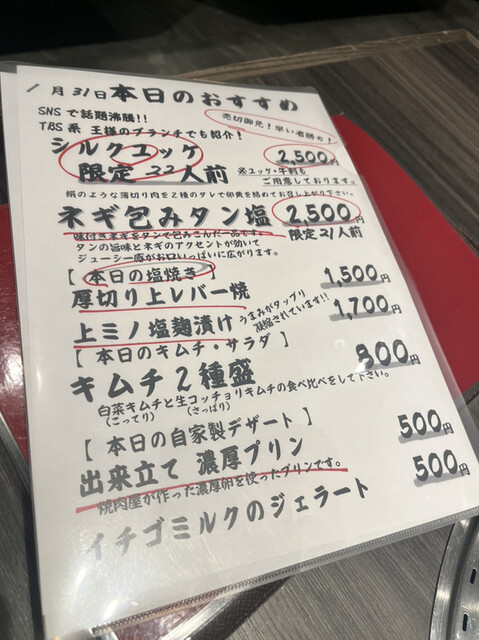 1月31日本日のおすすめ
SNSで話題沸騰!!
売切御免!早い者勝ち!
TBS系 王様のブランチでも紹介!
シルクユッケ 2,500円
限定22人前 ※ユッケ・牛刺もご用意しております。
絹のような薄切り肉を2種のタレで卵黄を絡めてお召し上がり下さい。
ネギ包みタン塩 2,500円
味付きネギをタンで包みこんだ一品です。 限定21人前
タンの旨味とネギのアクセントが効いて
ジューシー感がお口いっぱいに広がります。
【本日の塩焼き】
厚切り上レバー焼 1,500円
上ミノ塩麹漬け うまみがタップリ凝縮されています!! 1,700円
【本日のキムチ・サラダ】
キムチ2種盛 800円
白菜キムチと生コッチョリキムチの食べ比べをして下さい。
(こってり) (さっぱり)
【本日の自家製デザート】
出来立て 濃厚プリン 500円
焼肉屋が作った濃厚卵を使ったプリンです。
イチゴミルクのジェラート 500円